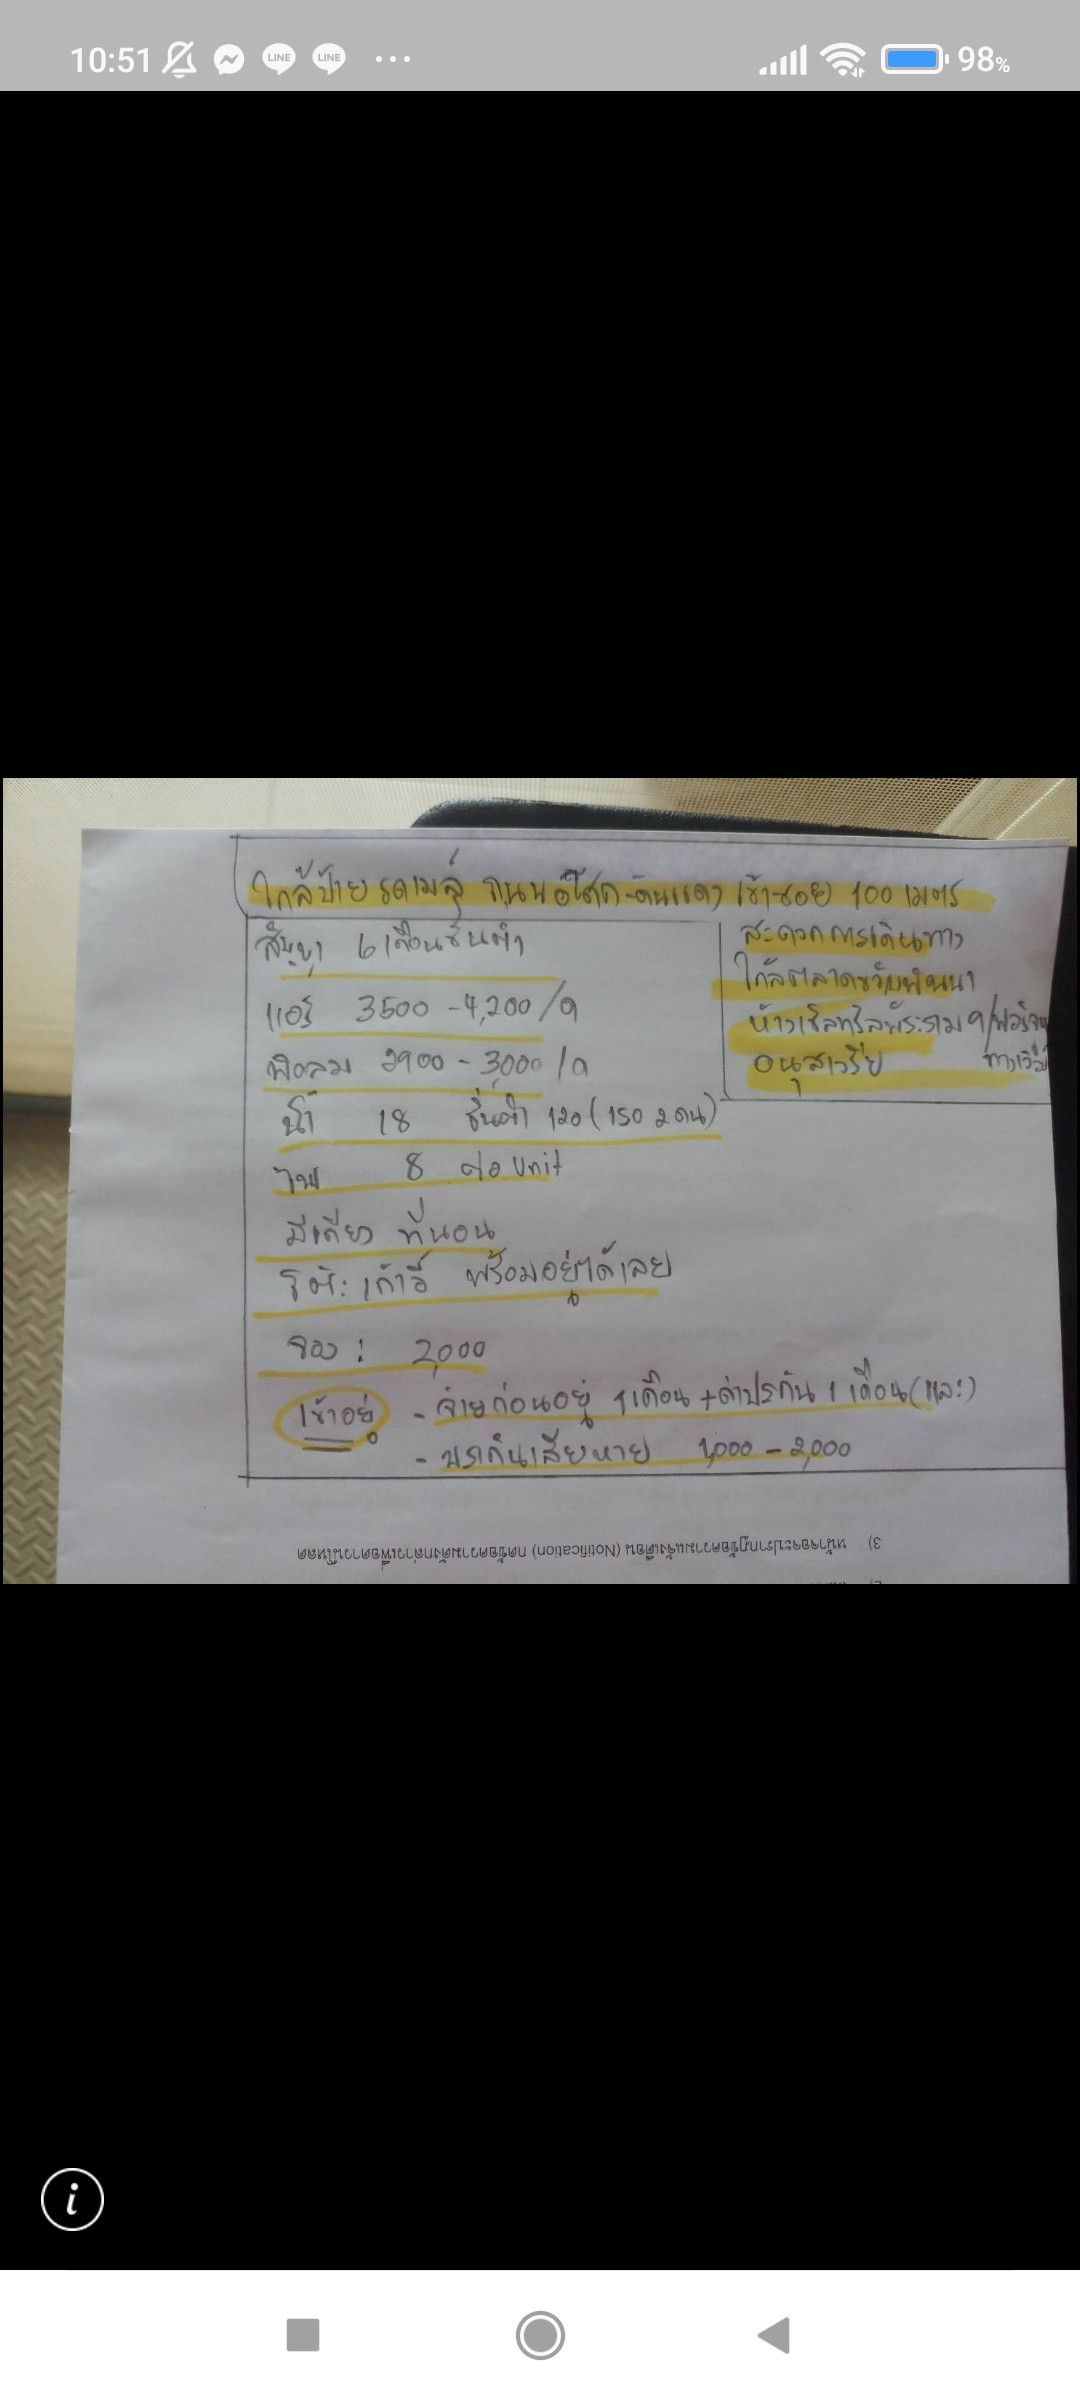 10:51 LINE LINE 98%
ใกล้ป้ายรถเมล์ ถนนอโศก-ดินแดง เข้าซอย 100 เมตร
สัญญา 6 เดือนขั้นต่ำ
แอร์ 3500 - 4,200/ด
พัดลม 2900 - 3000/ด
น้ำ 18 ขั้นต่ำ 120 (150 2 คน)
ไฟ 8 ต่อ Unit
มีเตียง ที่นอน
โต๊ะ เก้าอี้ พร้อมอยู่ได้เลย
จอง : 2,000
เข้าอยู่ - จ่ายก่อนอยู่ 1 เดือน + ค่าประกัน 1 เดือน (และ)
- ประกันเสียหาย 1,000 - 2,000
สะดวกการเดินทาง
ใกล้ตลาด
ห้างเซ็นทรัลพระราม 9/ฟอร์จูน
อนุสาวรีย์
3) หน้าจอจะปรากฏข้อความแจ้งเตือน (Notification) กดข้อความดังกล่าวเพื่อดาวน์โหลด